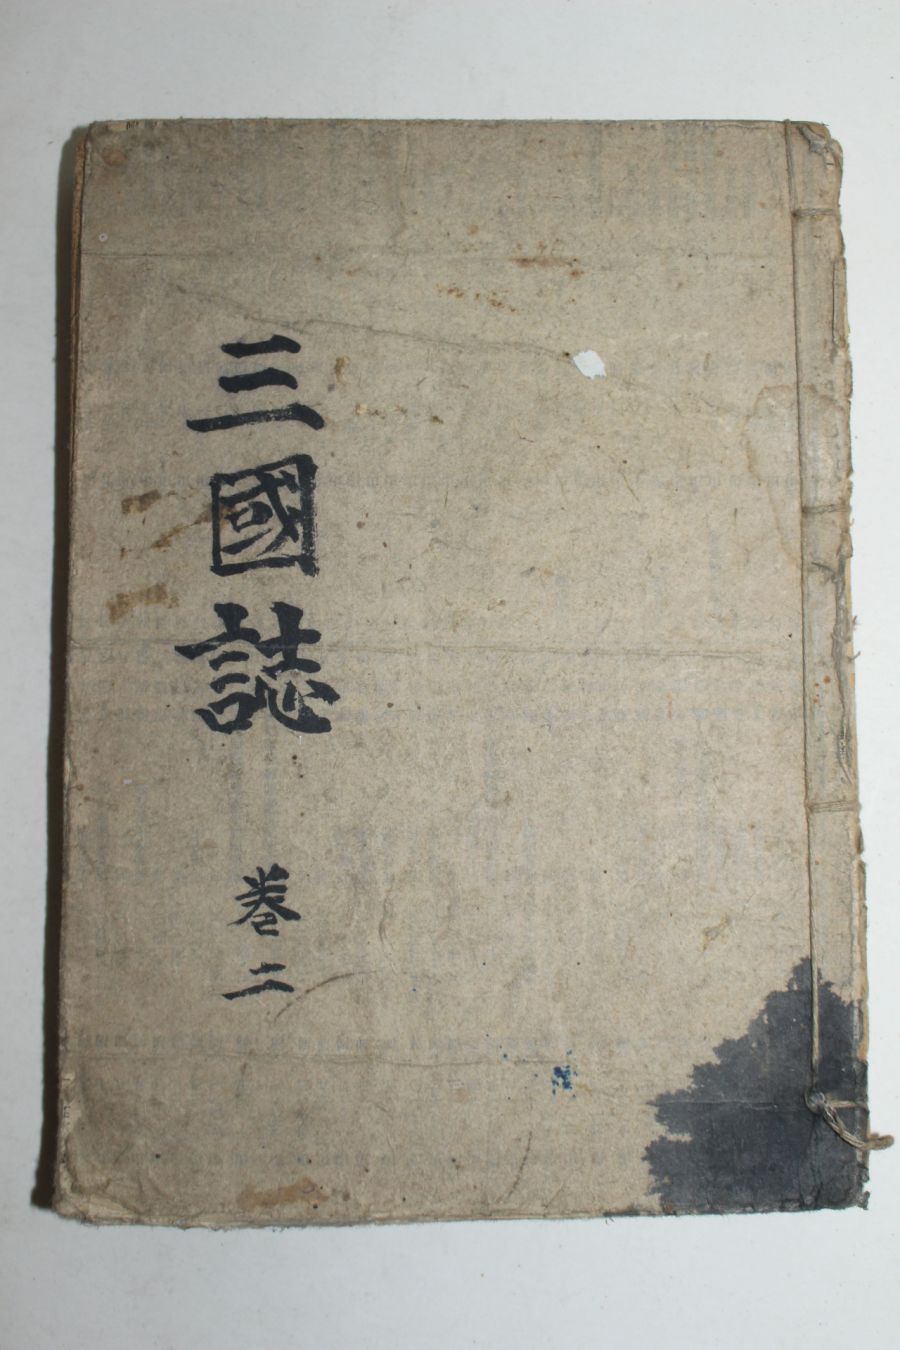 三國誌
卷二